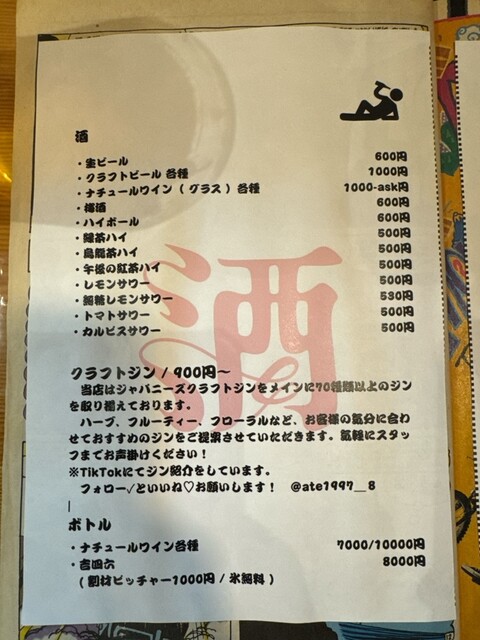 酒
・生ビール 600円
・クラフトビール 各種 1000円
・ナチュールワイン（グラス）各種 1000-ask円
・梅酒 600円
・ハイボール 600円
・緑茶ハイ 500円
・烏龍茶ハイ 500円
・午後の紅茶ハイ 500円
・レモンサワー 500円
・麹糖レモンサワー 530円
・トマトサワー 500円
・カルピスサワー 500円
酒
クラフトジン / 900円～
当店はジャパニーズクラフトジンをメインに70種類以上のジン
を取り揃えております。
ハーブ、フルーティー、フローラルなど、お客様の気分に合わ
せておすすめのジンをご提案させていただきます。気軽にスタッ
フまでお声掛けください！
※TikTokにてジン紹介をしています。
フォロー✓といいね♡お願いします！ @ate1997__8
ボトル
・ナチュールワイン各種 7000/10000円
・吉四六 8000円
（割材ピッチャー1000円 / 氷無料）